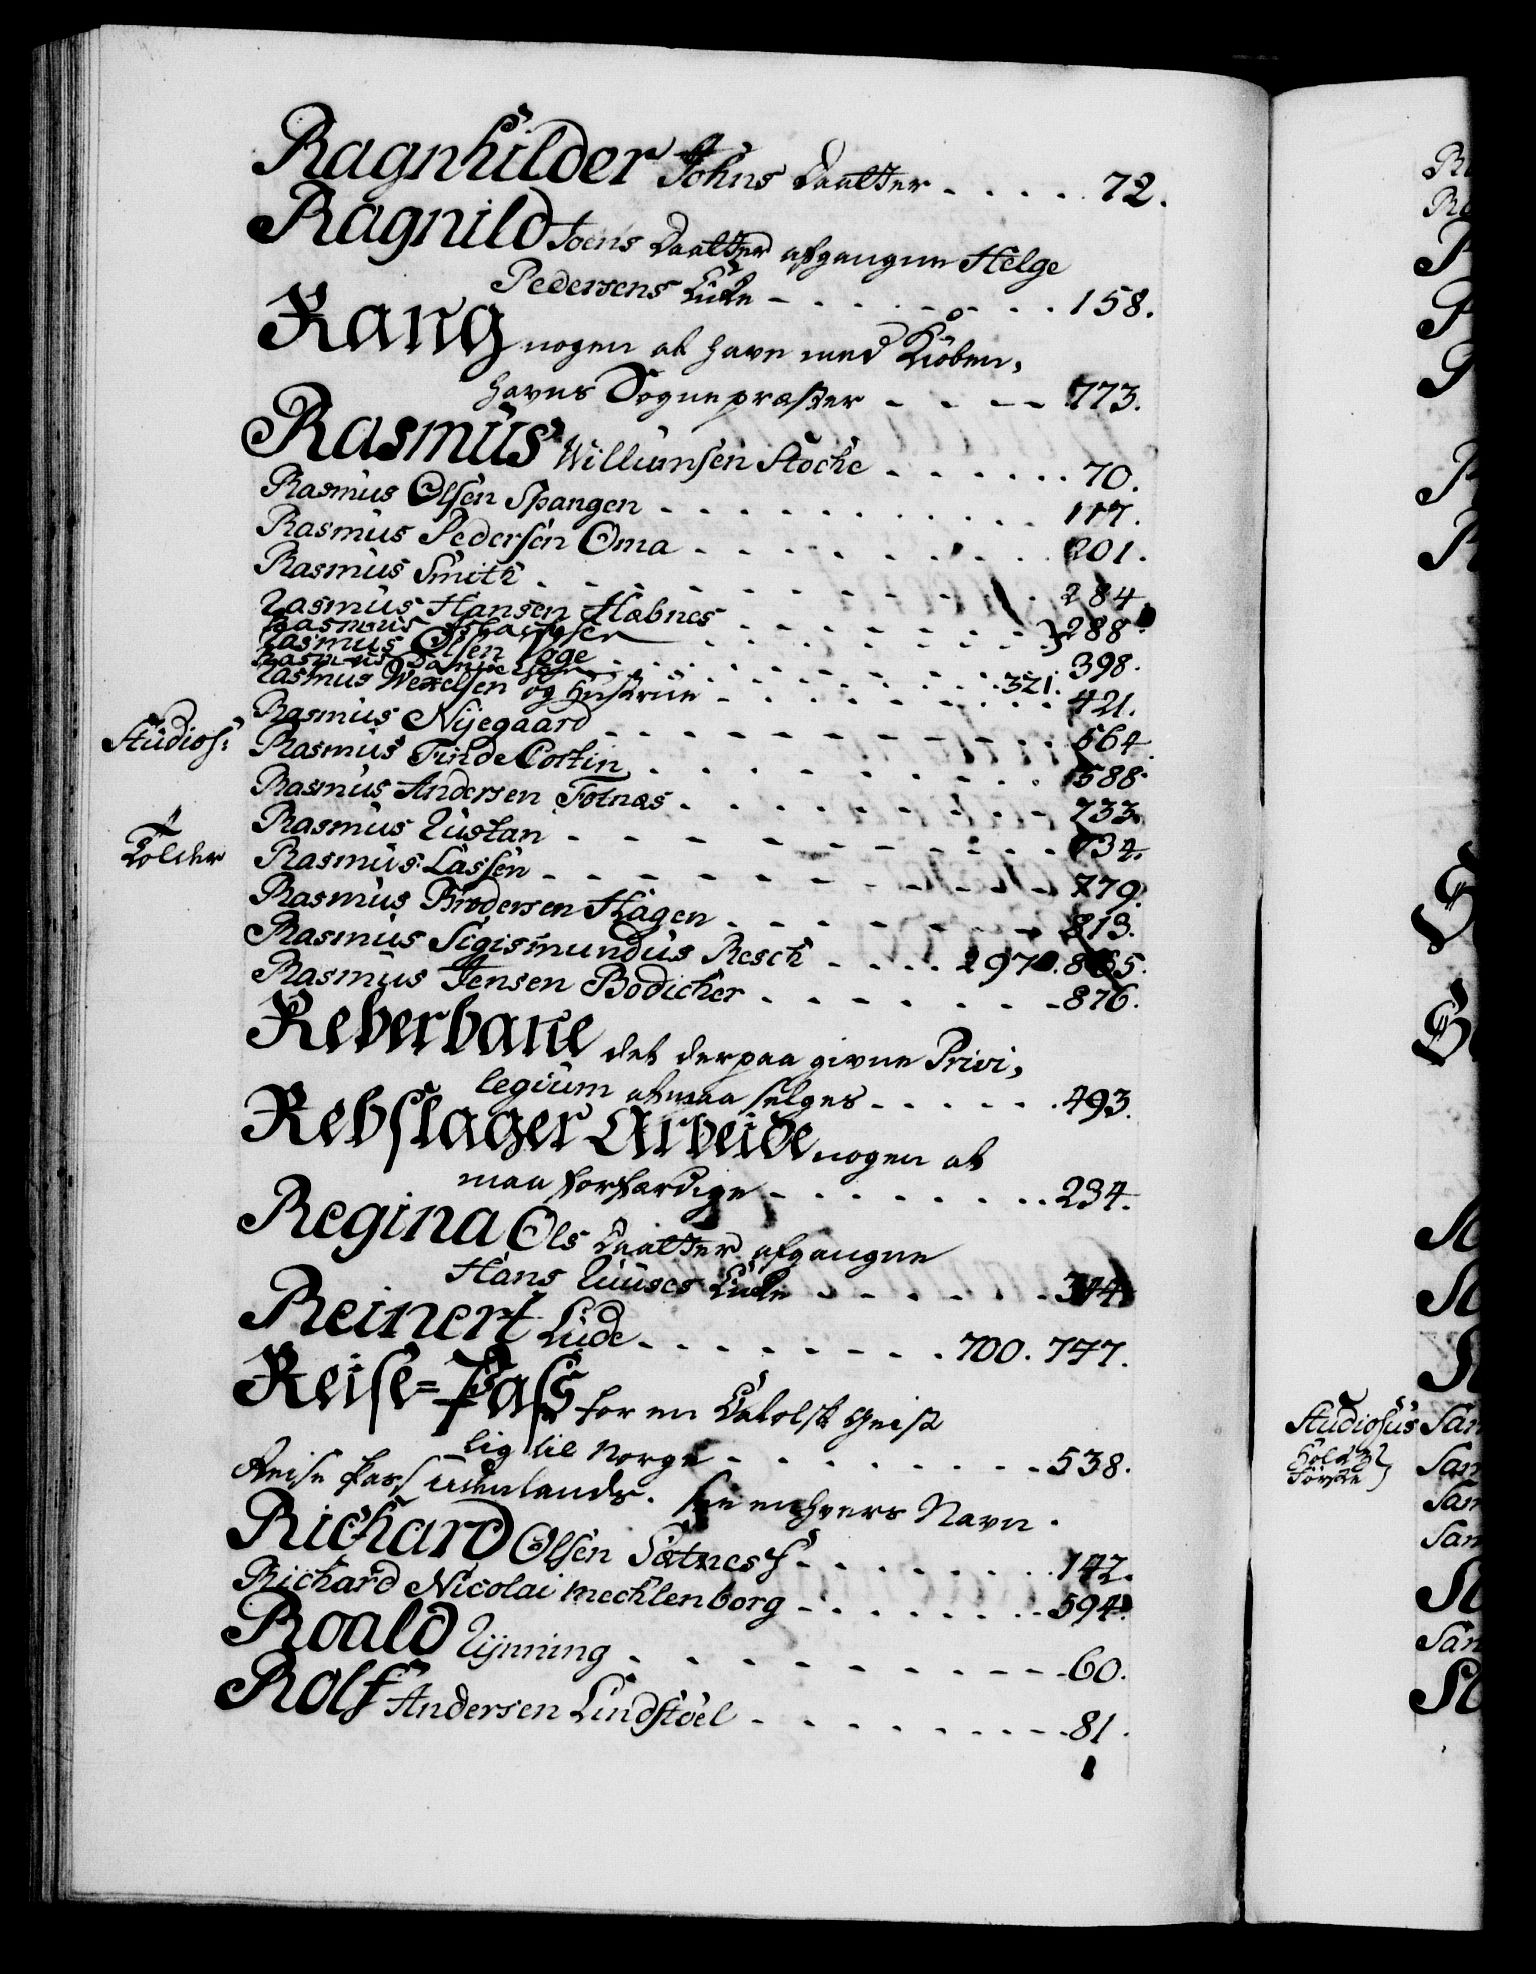 Ragnhilder Johns Daatter . . . . . 72.
Ragnild Joens Daatter afgangne Helge
Pedersens Lüke - . . . - . . . 158.
Rang nogen at have med Kiöben,
havns Sognepræster - - - - - 773.
Rasmüs Williumsen Stocke . . . . . . 70.
Rasmüs Olsen Spangen . . . . . . . . . . 117.
Rasmüs Pedersen Oma . . . . . . . . 201.
Rasmüs Smith . . . . . . . . . . 284.
Rasmüs Hansen Habnes . . . . . . . . } 288.
Rasmüs
Rasmüs Olsen Aage . . . . . . . . . 398.
Rasmus Danielsen . . . . . . . . 321.
Rasmus Wexelsen og Hustrue - . . . . . . . 421.
Rasmüs Nyegaard . . . . . . . . . . 564.
Stüdios: Rasmüs Find Cortin . . . . . . . . . 588.
Rasmüs Andersen Totnæs . . . . . . . . 733.
Rasmüs Lustan . . . . . . . . . 734.
Tolder Rasmüs Lassen . . . . . . . . . . 779.
Rasmüs Brodersen Hagen . . . . . . . 813.
Rasmüs Sigismundüs Resch . . . . 297. 865.
Rasmüs Jensen Bödicker . . . . . . . 876.
Reberbane det derpaa givne Privi,
legium at maa selges . . . . . . 493.
Rebslager Arbeide nogen at
maa forfærdige . . . . . . . . 234.
Regina Ols Daatter afgangne
Hans Lüüses Lüke . . . . . . 314.
Reinert Lüde . . . . . . . . 700. 747.
Reise-Pass for en Catolsk Geist
lig til Norge . . . . . . . . 538.
Reise Pass udenlands. see enhvers Navn.
Richard Olsen Sætness . . . . . . . . 142.
Richard Nicolai Mechlenborg . . . . . . . . 594.
Roald Rÿnning . . . . . . . . . . 60.
Rolf Andersen Lindstöel . . . . . . . . . 81.
Stüdiosüs San
San
San
San
San